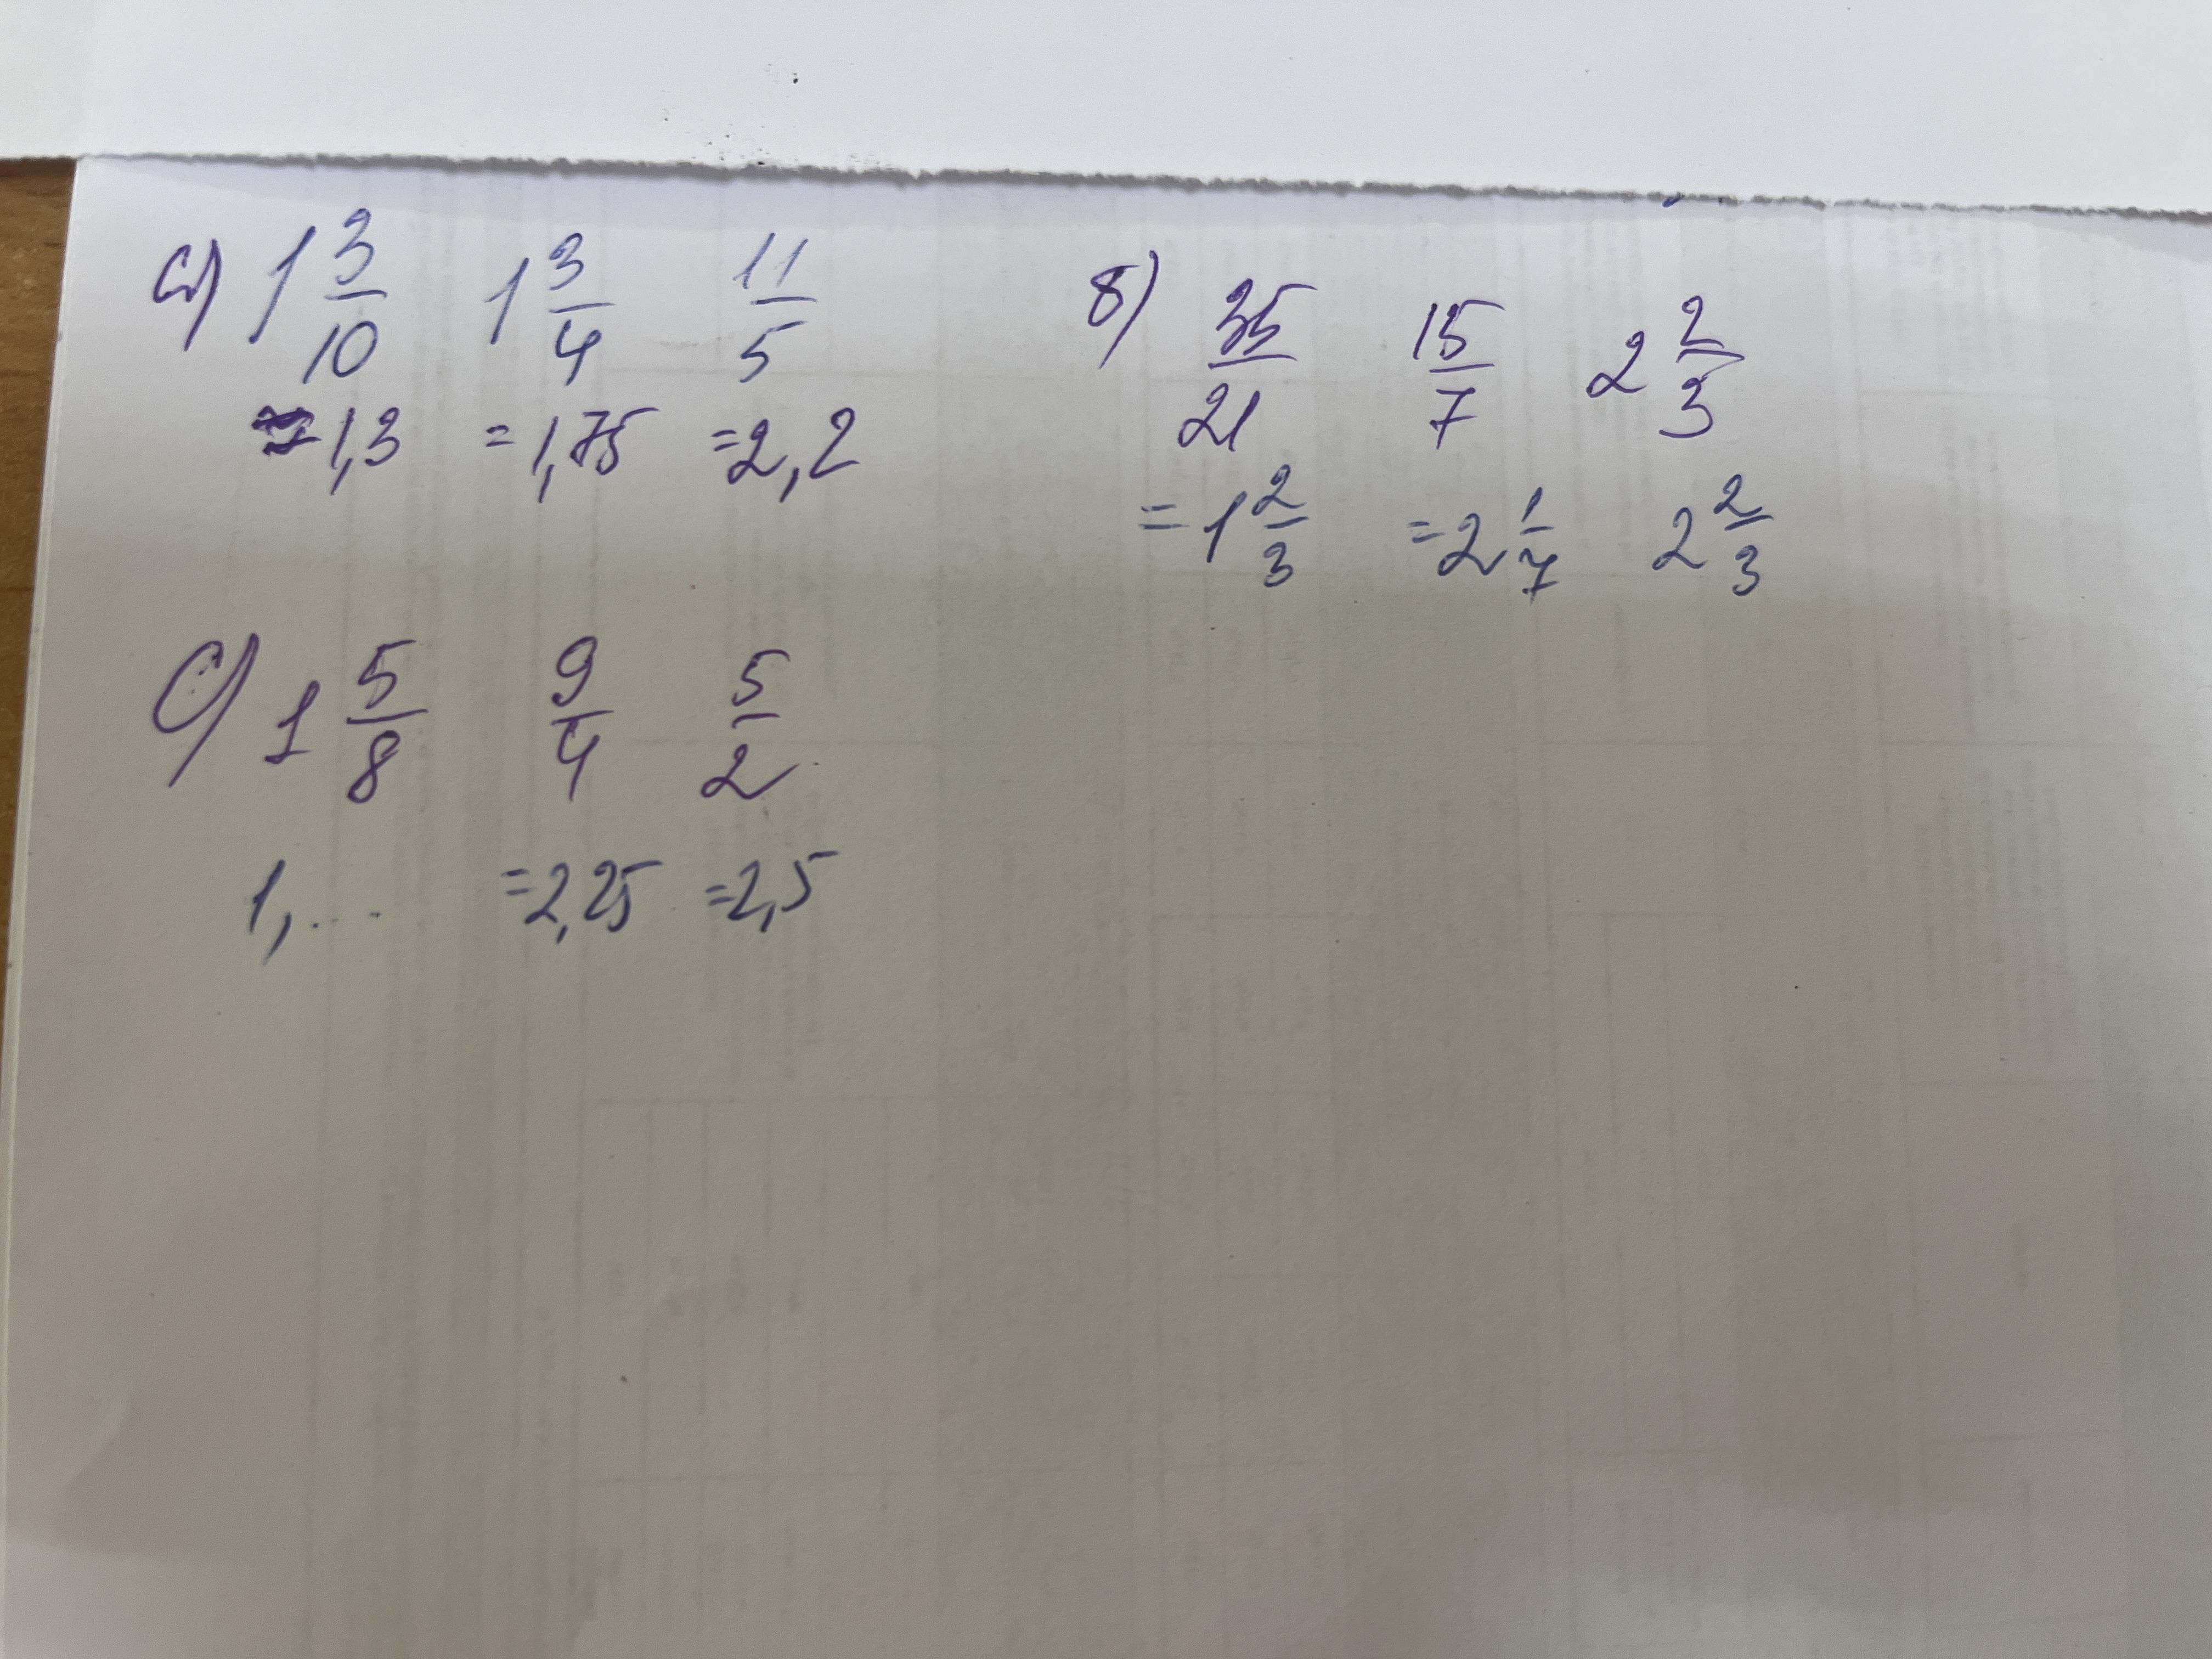 a) 1 3/10 1 3/4 11/5
= 1,3 = 1,75 = 2,2
б) 35/21 15/7 2 2/3
= 1 2/3 = 2 1/7 2 2/3
c) 1 5/8 9/4 5/2
1,... = 2,25 = 2,5